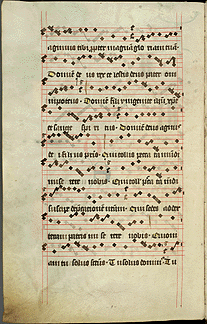 agimus tibi ppter magnā glo riam tuā
Domine de us rex ce lestis deus pater om
nipotens Domine fili vnigenite ihū xpē
et sancte spi ri tus Domine deus agnus
de i filius pris Qui tollis pecca ta mūdi
mise rere nobis Qui tollis pecca ta mūdi
suscipe deprecationem nostram Qui sedes ad dex
teram patris mi se rere nobis Quoni
am tu solus sctus Tu solus domin' Tu